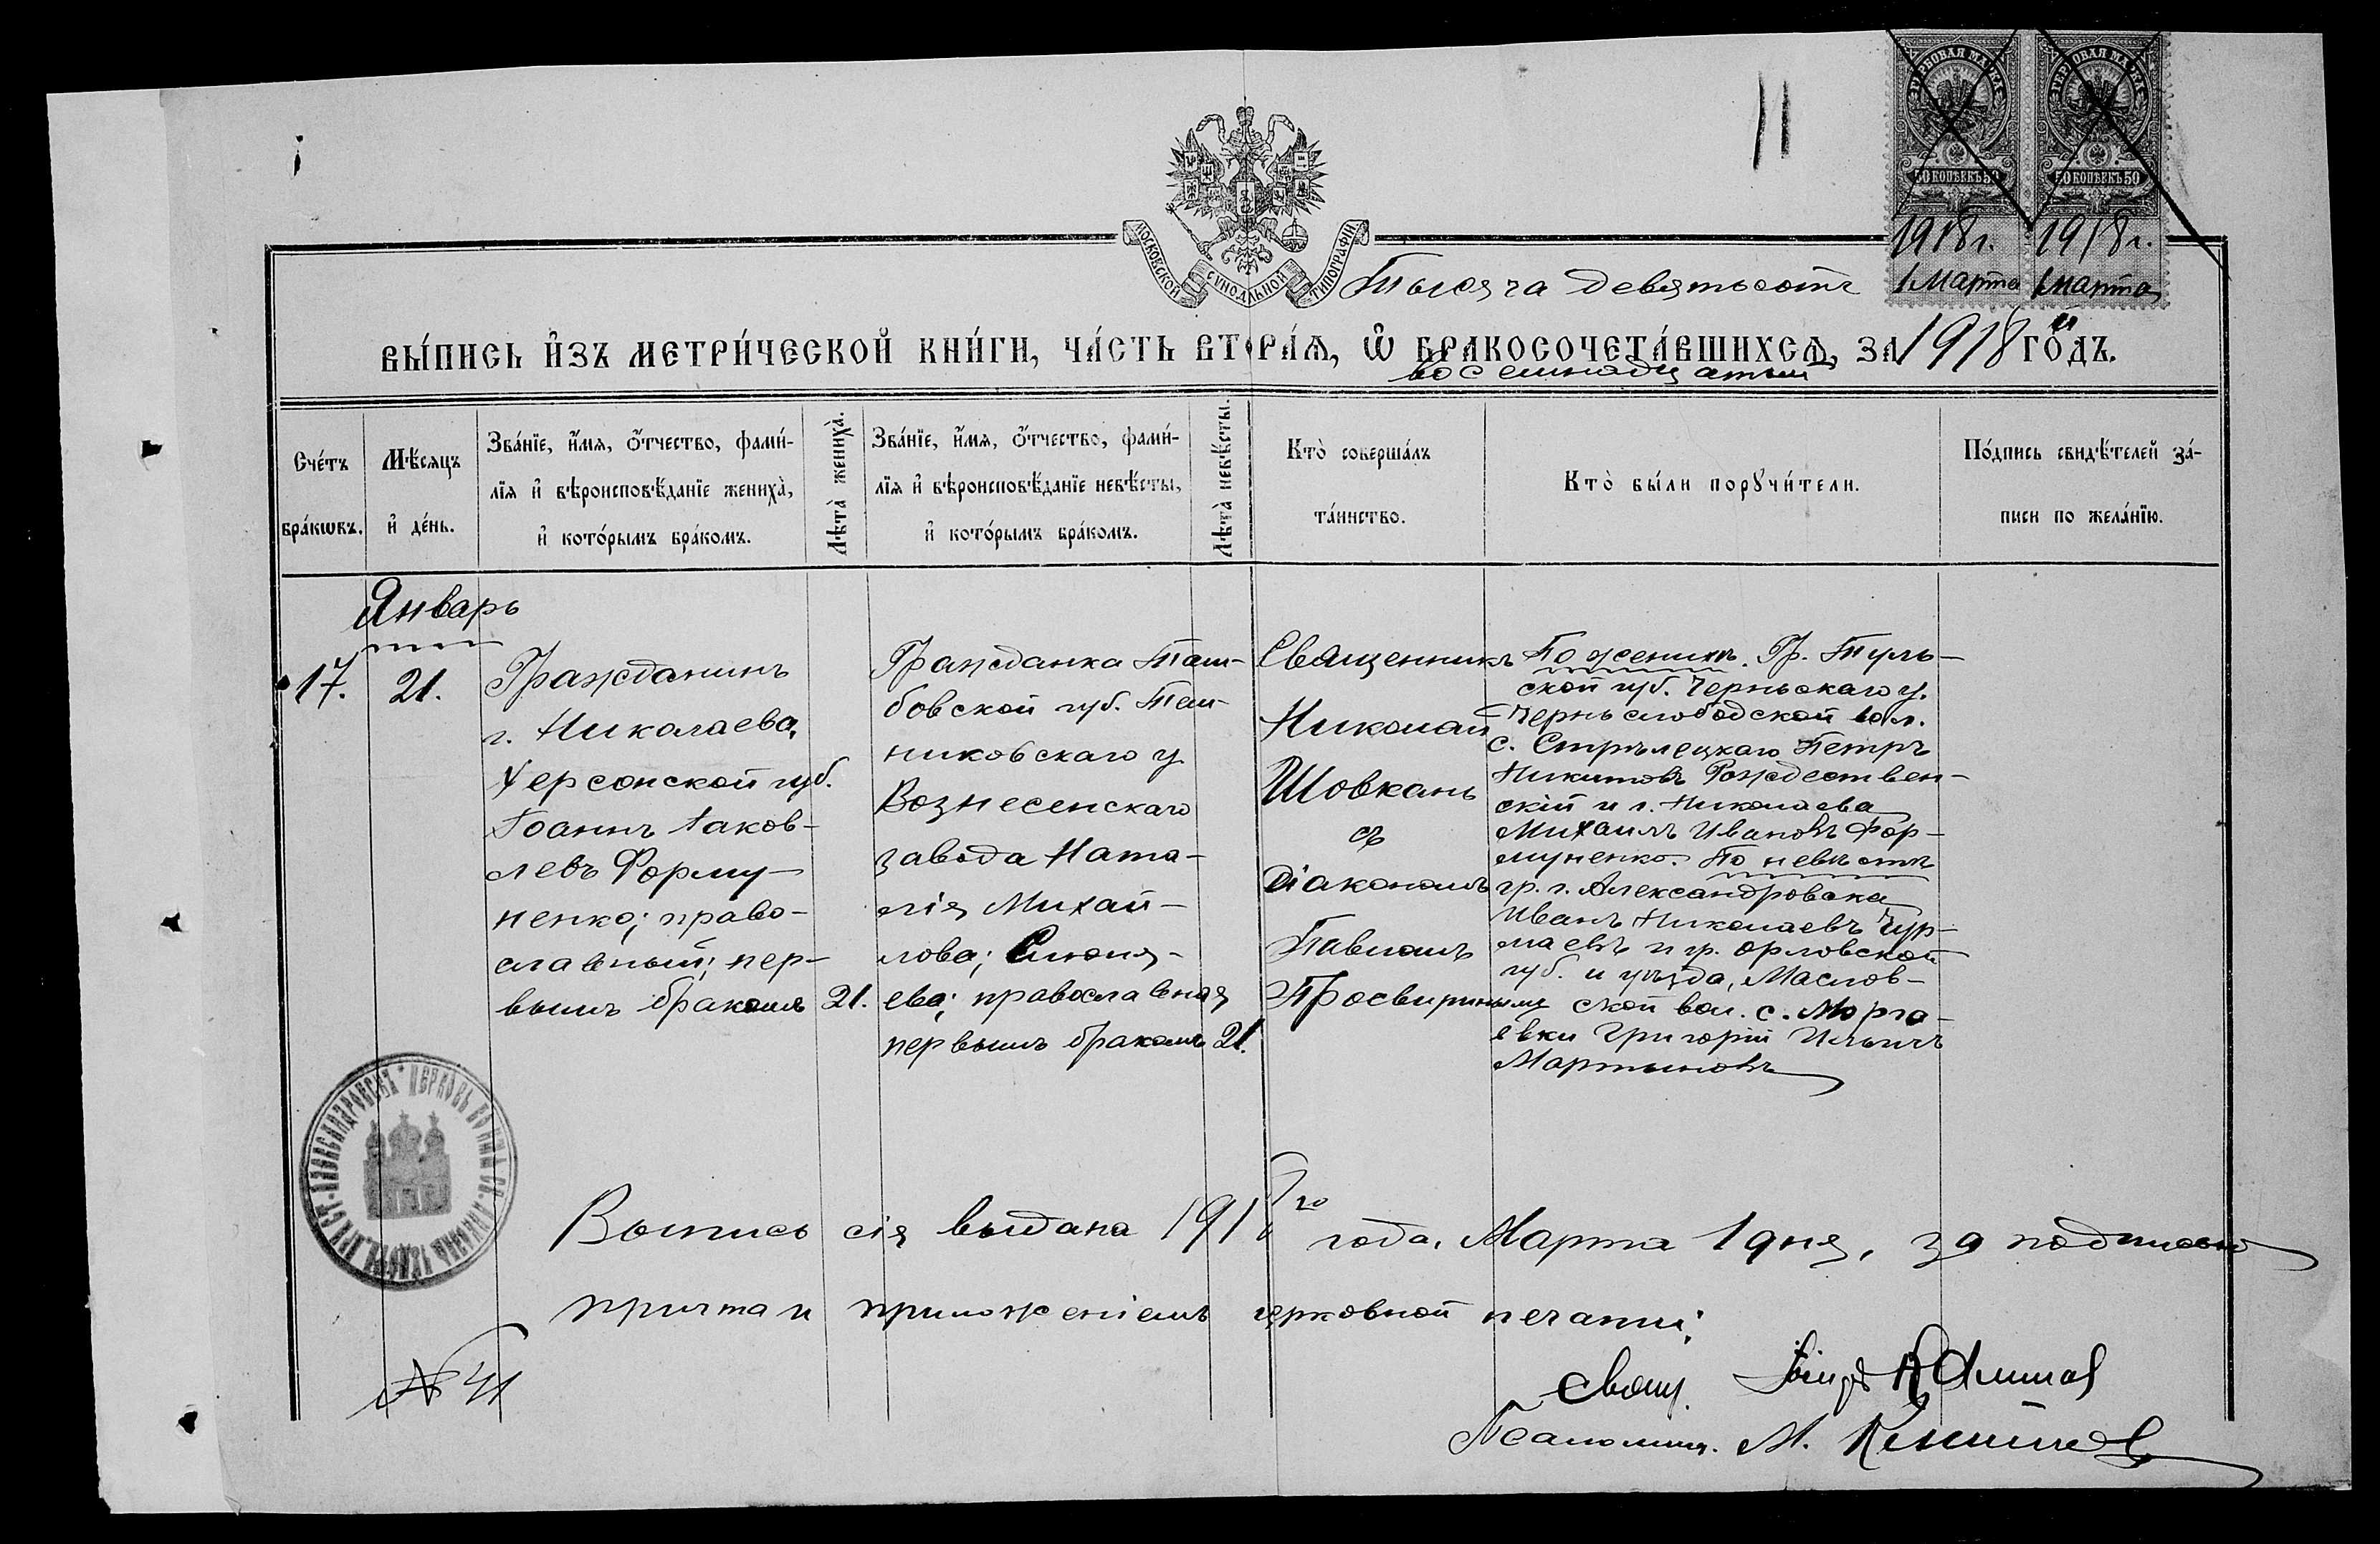 11
ГЕРБОВАЯ МАРКА ГЕРБОВАЯ МАРКА
50 КОПѢЕКЪ 50 50 КОПѢЕКЪ 50
1918 г. 1918 г.
1 Марта 1 Марта
МОСКОВСКОЙ СѴНОДАЛЬНОЙ ТИПОГРАФІИ
Тысяча девятьсотъ
ВЫ́ПИСЬ И҆ЗЪ МЕТРИ́ЧЕСКОЙ КНИ́ГИ, ЧА́СТЬ ВТОРА́Ѧ, Ѡ҆ БРАКОСОЧЕТА́ВШИХСѦ, ЗА 1918 й ГО́ДЪ.
восемнадцатый
Сче́тъ
бра́кѡвъ.
Мѣ́сяцъ
и҆ де́нь.
Зва́нїе, и҆́мя, ѻ҆́тчество, фами́-
лїя и҆ вѣроисповѣ́данїе жениха̀,
и҆ кото́рымъ бра́комъ.
Лѣта̀ жениха̀.
Зва́нїе, и҆́мя, ѻ҆́тчество, фами́-
лїя и҆ вѣроисповѣ́данїе невѣ́сты,
и҆ кото́рымъ бра́комъ.
Лѣта̀ невѣ́сты.
Кто̀ соверша́лъ
та́инство.
Кто̀ бы́ли порꙋчи́тели.
По́дпись свидѣ́телей за́-
писи по жела́нїю.
Январь
17.
21.
Гражданинъ
г. Николаева,
Херсонской губ.
Іоаннъ Іаков-
левъ Форму-
ненко; право-
славный; пер-
вымъ бракомъ
21.
Гражданка Там-
бовской губ. Тем-
никовскаго у.
Вознесенскаго
завода Ната-
лія Михай-
лова;
ева; православная
первымъ бракомъ
21.
Священникъ
Николай
Шовкань
съ
Діакономъ
Павломъ
Просвиринымъ
По женихѣ. Гр. Туль-
ской губ. Черньскаго у.
Чернь слободской вол.
с. Стрѣлецкаго Петръ
Никитовъ Рождествен-
скій и г. Николаева
Михаилъ Ивановъ Фор-
муненко. По невѣстѣ
гр. г. Александровска
Иванъ Николаевъ Чур-
маевъ и гр. Орловской
губ. и уѣзда, Маслов-
ской вол. с.
евки Григорій Ильичъ
Мартыновъ
Выпись сія выдана 1918 го года, Марта 1 дня, за подписью
причта и приложеніемъ церковной печати;
№ 41
Свящ.
Псаломщ. М.